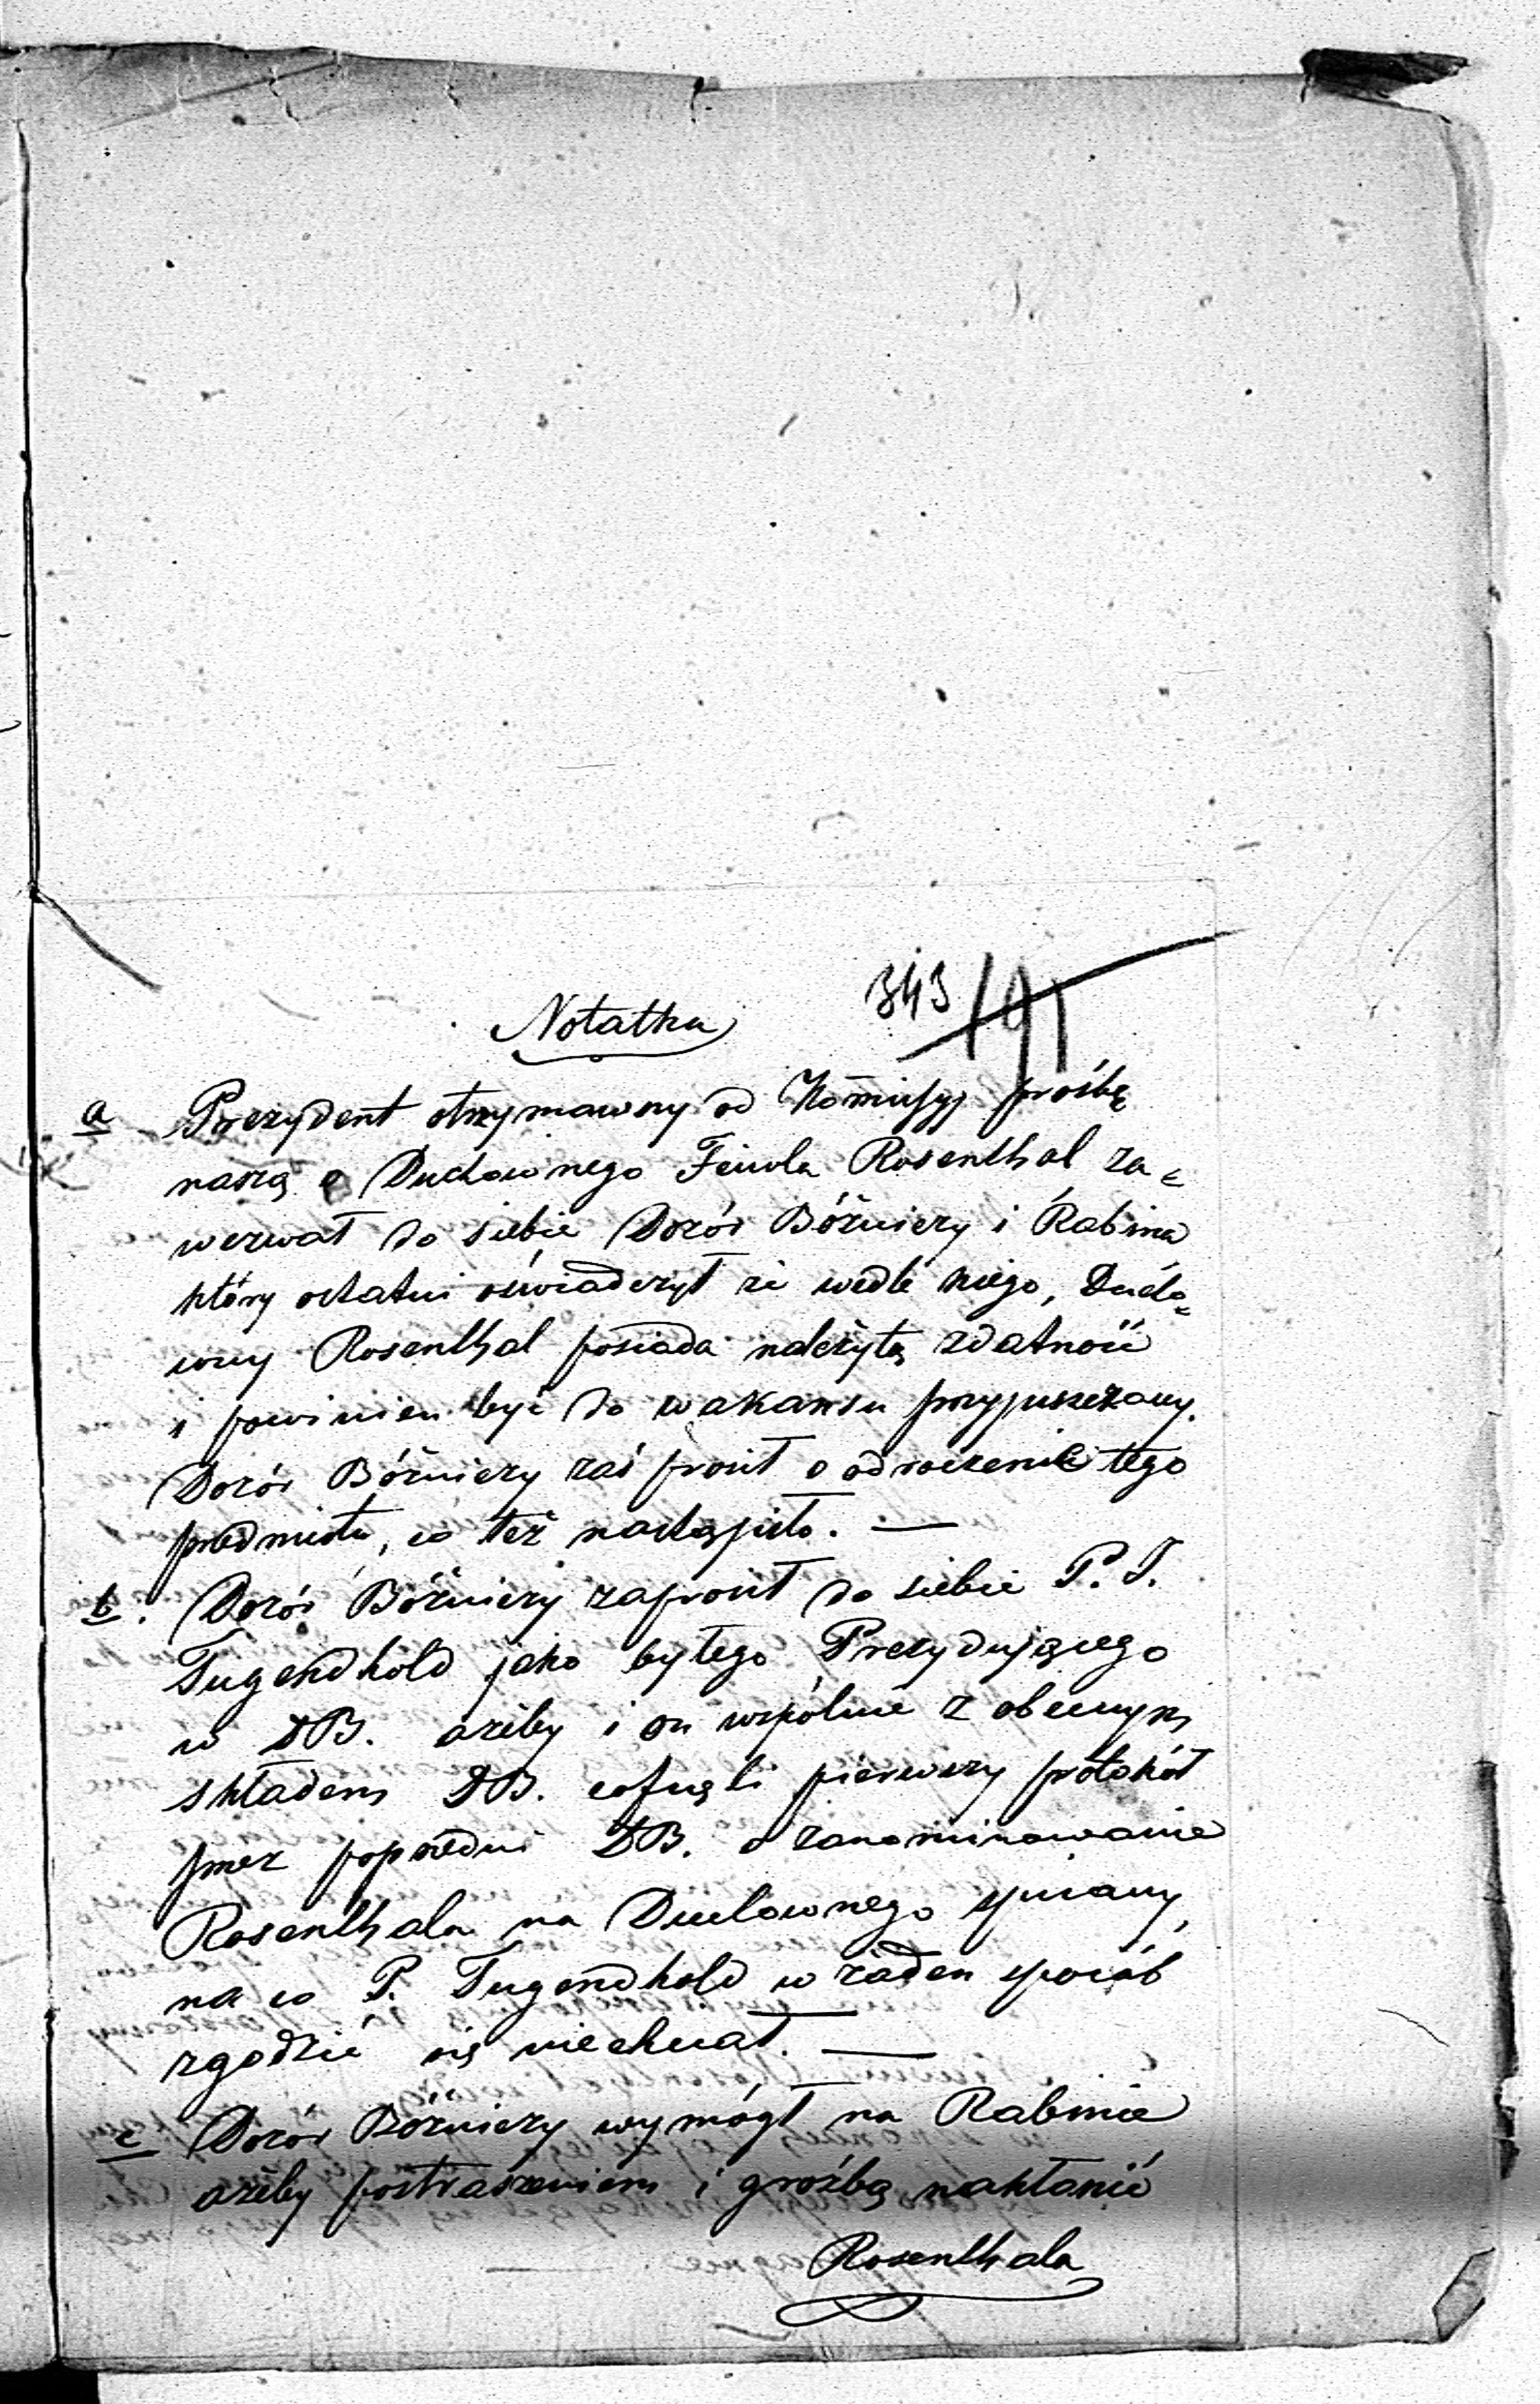 343 191
Notatka
a Prezydent otrzymawszy od Kom̄issyi prośbę
naszą o Duchownego Feiwla Rosenthal za=
wezwał do siebie Dozór Bóżniczy i Rabina
który ostatni oświadczył że wedle niego,Ducho=
wny Rosenthal posiada należytą zdatność
i powinien być do wakansu przypuszczany.
Dozór Bóżniczy zaś prosił o odroczenie tego
przedmiotu, co też nastąpiło. —
b. Dozór Bóżniczy zaprosił do siebie P. J.
Tugendhold jako byłego Prezydującego
w DB. ażeby i on wspólnie z obecnym
składem DB. cofnęli pierwszy protokół
przez poprzedni DB. o zanominowanie
Rosenthala na Duchownego spisany,
na co P. Tugendhold w żaden sposób
zgodzić się niechciał. —
c Dozór Bóżniczy wymógł na Rabinie
ażeby postraszeniem i groźbą nakłonić
Rosenthala